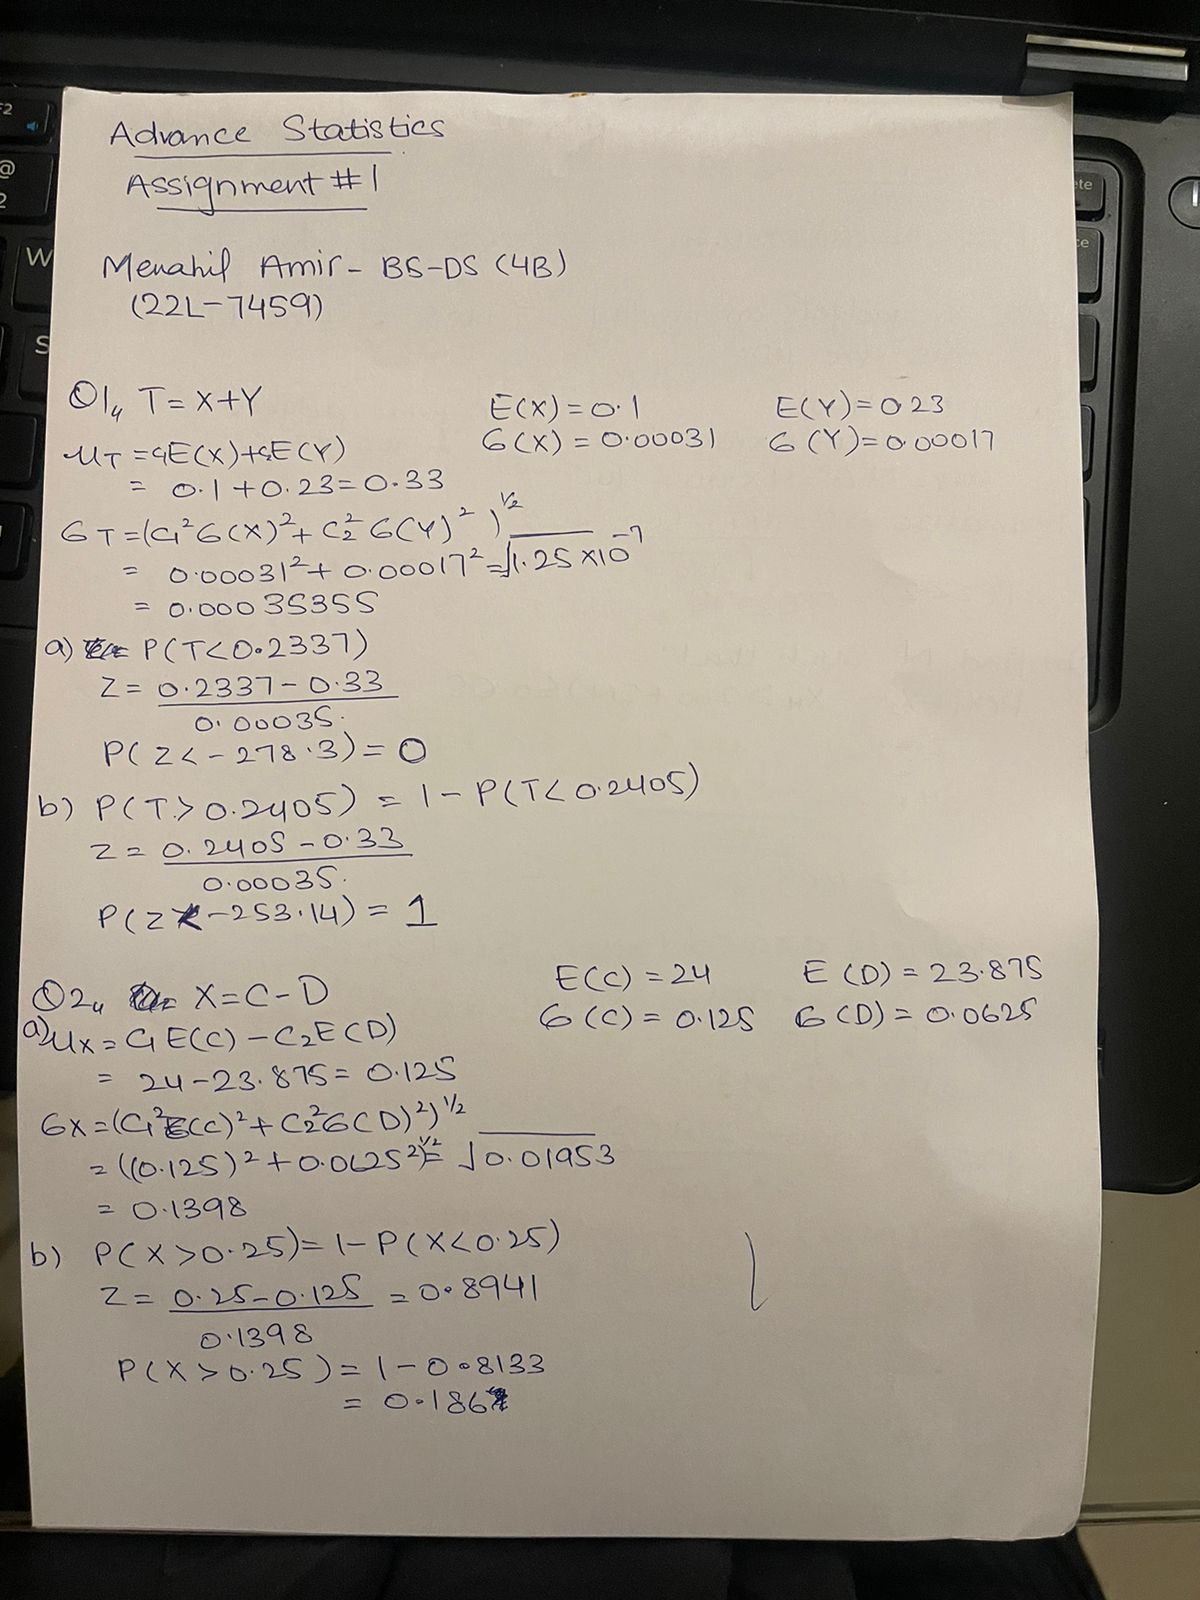 Advance Statistics
Assignment #1
Menahil Amir - BS-DS (4B)
(22L-7459)
Q1, T = X+Y
E(X) = 0.1
E(Y) = 0.23
μT = c1E(X)+c2E(Y)
σ(X) = 0.00031
σ(Y) = 0.00017
= 0.1 + 0.23 = 0.33
σT = (c1²σ(X)² + c2²σ(Y)²)^1/2
= 0.00031² + 0.00017² = √1.25 ×10^-7
= 0.00035355
a) P(T<0.2337)
Z = 0.2337 - 0.33
0.00035.
P(Z < -278.3) = 0
b) P(T > 0.2405) = 1 - P(T < 0.2405)
Z = 0.2405 - 0.33
0.00035.
P(Z < -253.14) = 1
Q2, X = C - D
E(C) = 24
E(D) = 23.875
a) μX = C1E(C) - C2E(D)
σ(C) = 0.125
σ(D) = 0.0625
= 24 - 23.875 = 0.125
σX = (C1²σ(C)² + C2²σ(D)²)^1/2
= ((0.125)² + 0.0625²)^1/2 = √0.01953
= 0.1398
b) P(X > 0.25) = 1 - P(X < 0.25)
Z = 0.25 - 0.125 = 0.8941
0.1398
P(X > 0.25) = 1 - 0.8133
= 0.186
F2
@
2
W
S